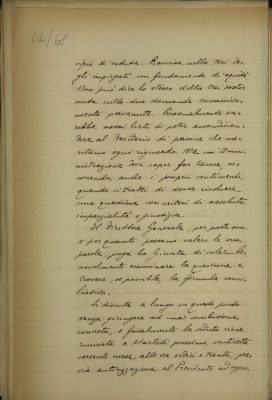 cipio di seduta. Ravvisa nella tesi de-
gli impiegati un fondamento di equità.
Non può dire lo stesso della tesi
nelle due domande successiva-
mente pervenute. Personalmente sa-
rebbe assai lieto di poter accondiscen-
dere al desiderio di persone che me-
ritano ogni riguardo, ma un Ammi-
nistratore deve saper far tacere, oc-
correndo, anche i propri sentimenti,
quando si tratti di dover risolvere
una questione con criteri di assoluta
imparzialità e giustizia.
Il Direttore Generale, per parte sua
e per quanto possano valere le sue
parole, prega la Giunta di voler be-
nevolmente esaminare la questione e
trovare, se possibile, la formula conci-
liativa.
Si discute a lungo su questo punto
senza giungere ad una conclusione
concreta, e finalmente la seduta viene
rinviata a Martedì prossimo, ventisette
corrente mese, alle ore sedici e trenta, pre-
via autorizzazione al Presidente ad